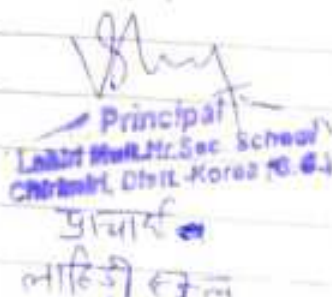 Principal
Lahiri Mult. Hr. Sec. School
Chirimiri, Distt. Korea
प्राचार्य
लाहिडी स्कूल